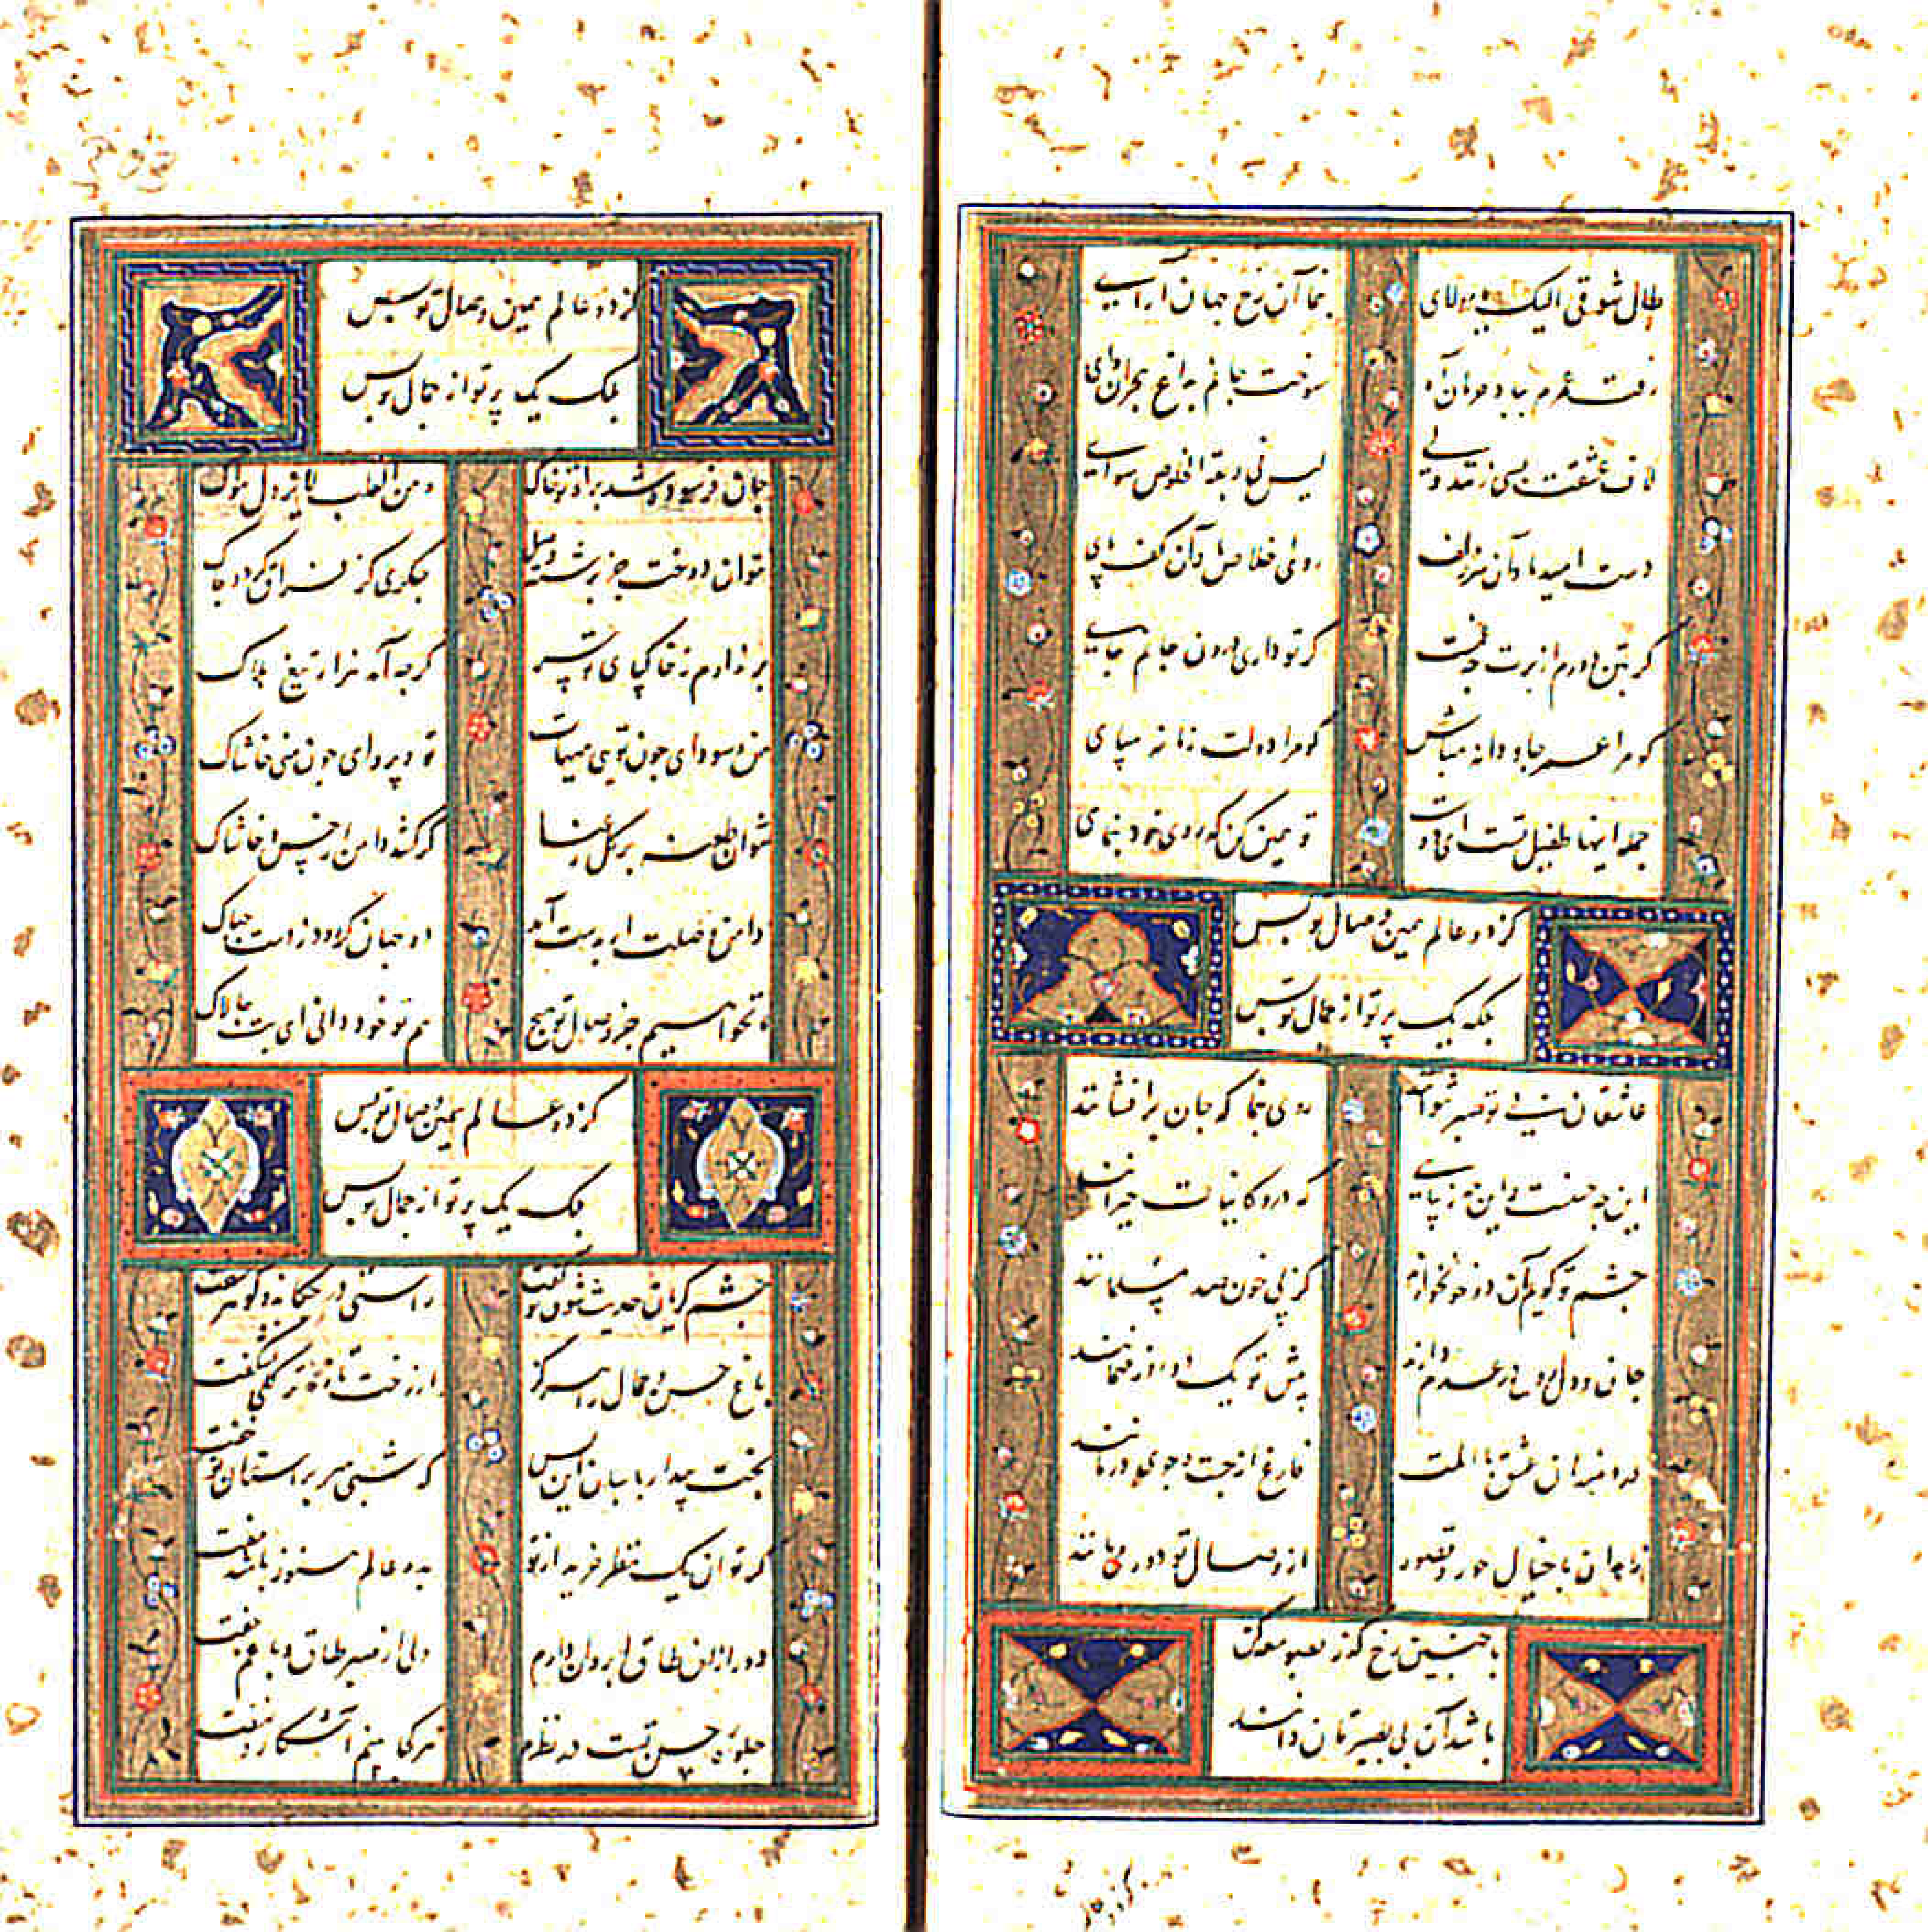 طال شوقی الیک یا مولای بنما آن رخ جهان آرای
رفت عمرم بباد آه سوخت جانم بداغ هجران وای
لاف عشقت بسی زند ولی لیس فی ربقة الخلوص سوای
دست امید ما و آن سر زلف روی اخلاص و آن کف پای
گر بتن دورم از برت چه غمست گر تو داری درون جانم جای
گو مرا عمر جاودانه مباش گو مرا دولت زمانه مپای
جمله اینها طفیل تست ای دوست تو همین کن که روی خود بنمای
کز دو عالم همین وصال تو بس
بلکه یک پرتو از جمال تو بس
عاشقان بی تو صبر نتوانند روی بنما که جان برافشانند
این چه حسنست و این چه زیبایی که درو کاینات حیرانند
چشم تو گویم آن دو خونخوارند کز پی خون صد مسلمانند
جان و دل پیش تو یک
در میدان عشق با المت فارغ از جست و جوی درمانند
زاهدان با خیال حور و قصور از وصال تو دور می‌مانند
با چنین رخ گذر
باشد آن بی بصیرتان دانند
کز دو عالم همین وصال تو بس
بلک یک پرتو از جمال تو بس
جان فرسوده شد براه تو خاک و من القلب لا یزول هواک
نتوان دوخت جز برشته وصل جگری کز فراق گردد چاک
بر ندارم ز خاکپای تو سر گرچه آید هزار تیغ هلاک
من و سودای چون تویی هیهات تو و پروای چون منی حاشاک
نتوان طعنه بر گل رعنا گر کشد دامن از خس و خاشاک
دامن وصلت ار بدست آید دو جهان گر رود ز دست چه باک
ما نخواهیم جز وصال تو هیچ هم تو خود دانی ای بت چالاک
کز دو عالم همین وصال تو بس
بلک یک پرتو از جمال تو بس
چشم گریان حدیث شوق تو گفت راستی در چکاند و گوهر سفت
باغ حسن و جمال را هرگز از رخت تازه‌تر گلی نشکفت
بخت بیدار پاسبان این بس که شبی سر بر آستان تو خفت
گر توان یک نظر خرید از تو بدو عالم هنوز باشد مفت
دور از آن طاق ابروان دارم دلی از صبر طاق و با غم جفت
جلوه حسن تست در نظرم هر کجا بینم آشکار و نهفت